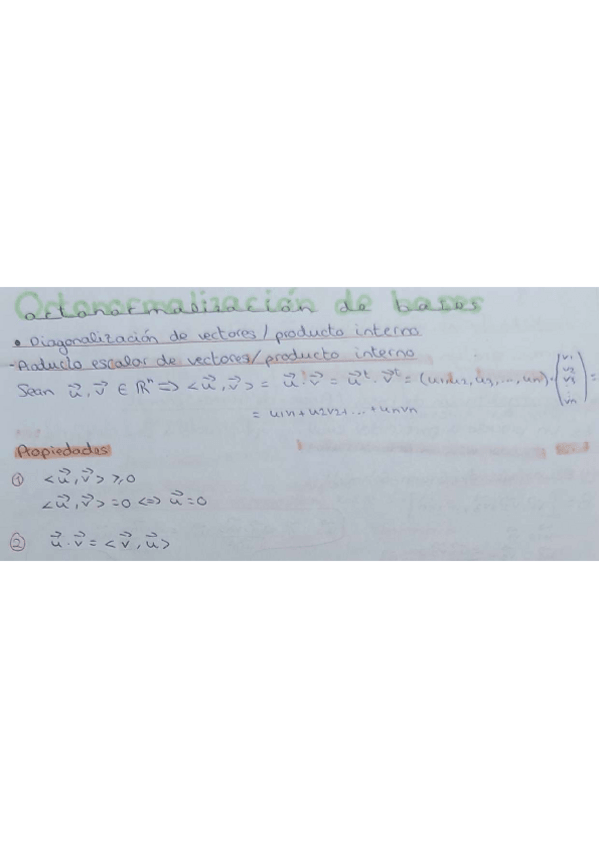 Octonormalización de bases
• Diagonalización de vectores / producto interno
- Producto escalar de vectores / producto interno
Sean u⃗, v⃗ ∈ ℝⁿ => <u⃗, v⃗> = u⃗ · v⃗ = u⃗ᵗ · v⃗ᵗ = (u1, u2, u3, ..., un) · (v1 v2 v3 ⋮ vn) =
= u1v1 + u2v2 + ... + unvn
Propiedades
① <u⃗, v⃗> ≥ 0
<u⃗, v⃗> = 0 <=> u⃗ = 0
② u⃗ · v⃗ = <v⃗, u⃗>